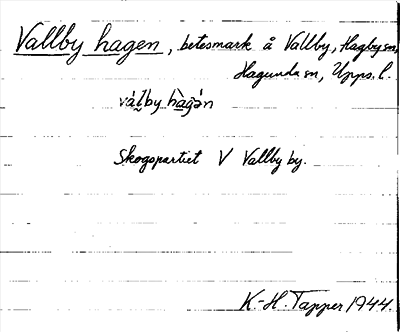 Vallby hagen, betesmark å Vallby, Hagby sn,
Hagunda sn, Upps. l.
vál̰by hà̰gə̀n
Skogspartiet V Vallby by.
K-H. Tapper 1944.